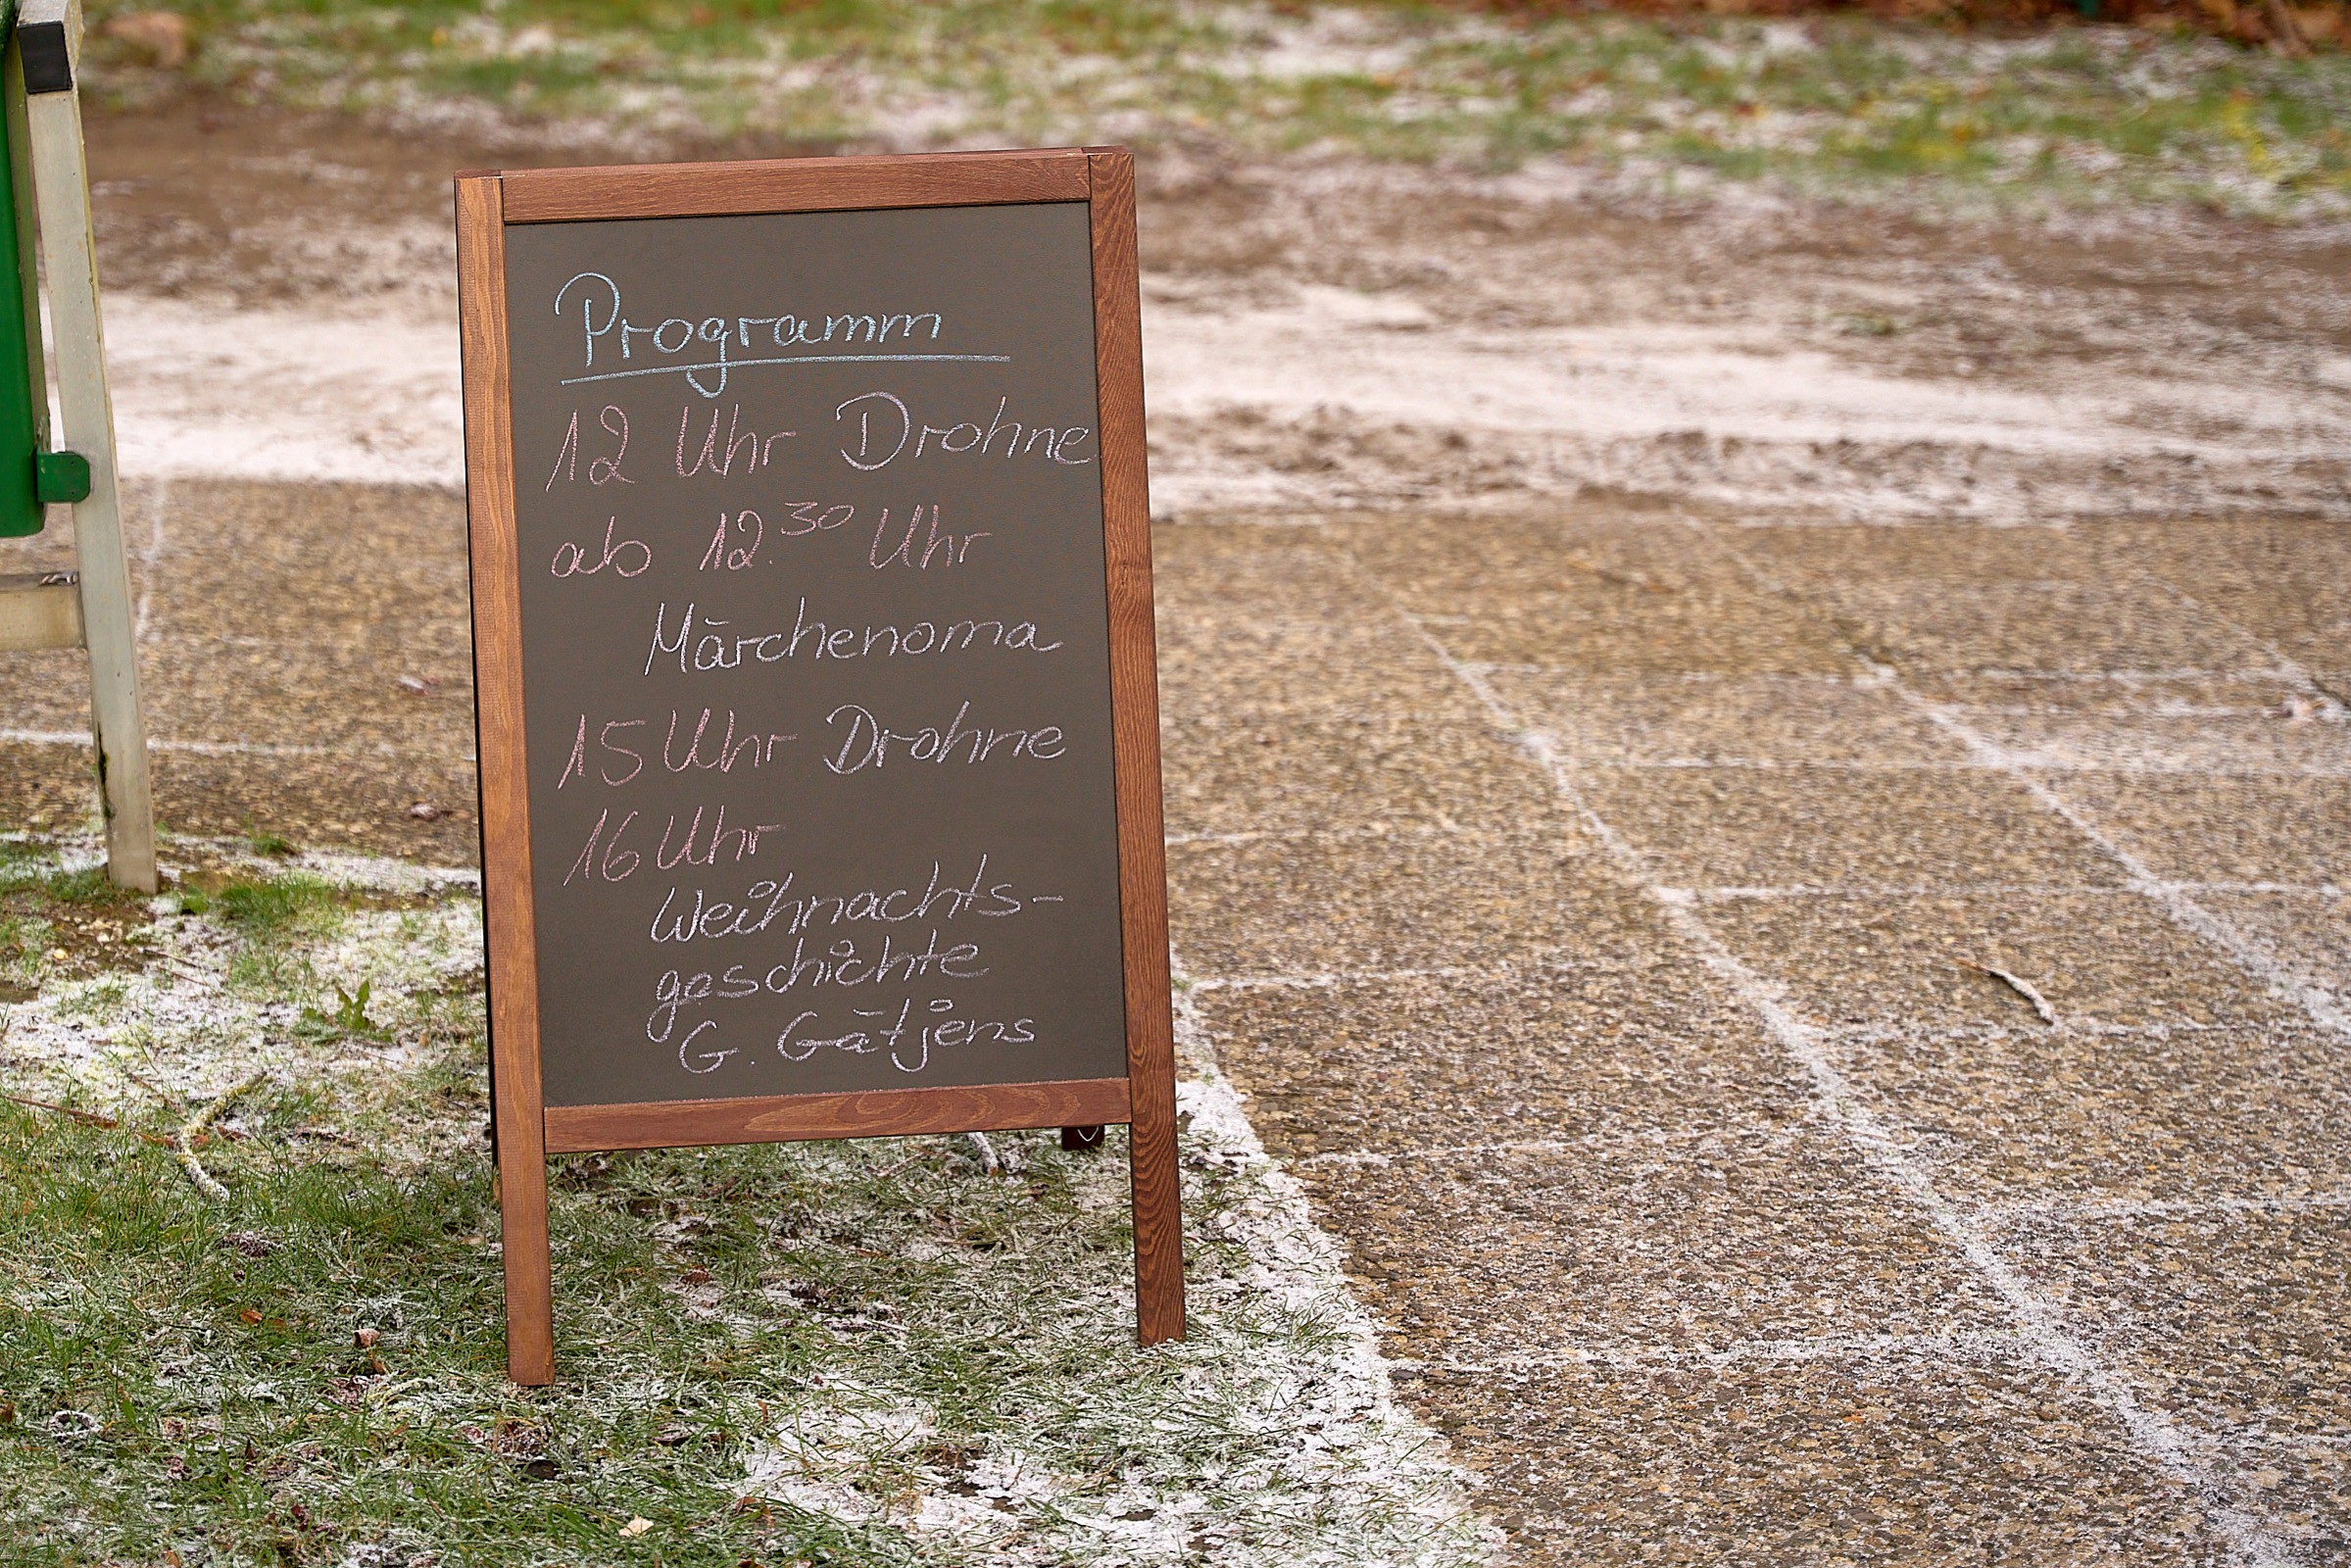 Programm
12 Uhr Drohne
ab 12.30 Uhr
Märchenoma
15 Uhr Drohne
16 Uhr
Weihnachts-
geschichte
G. Gätjens